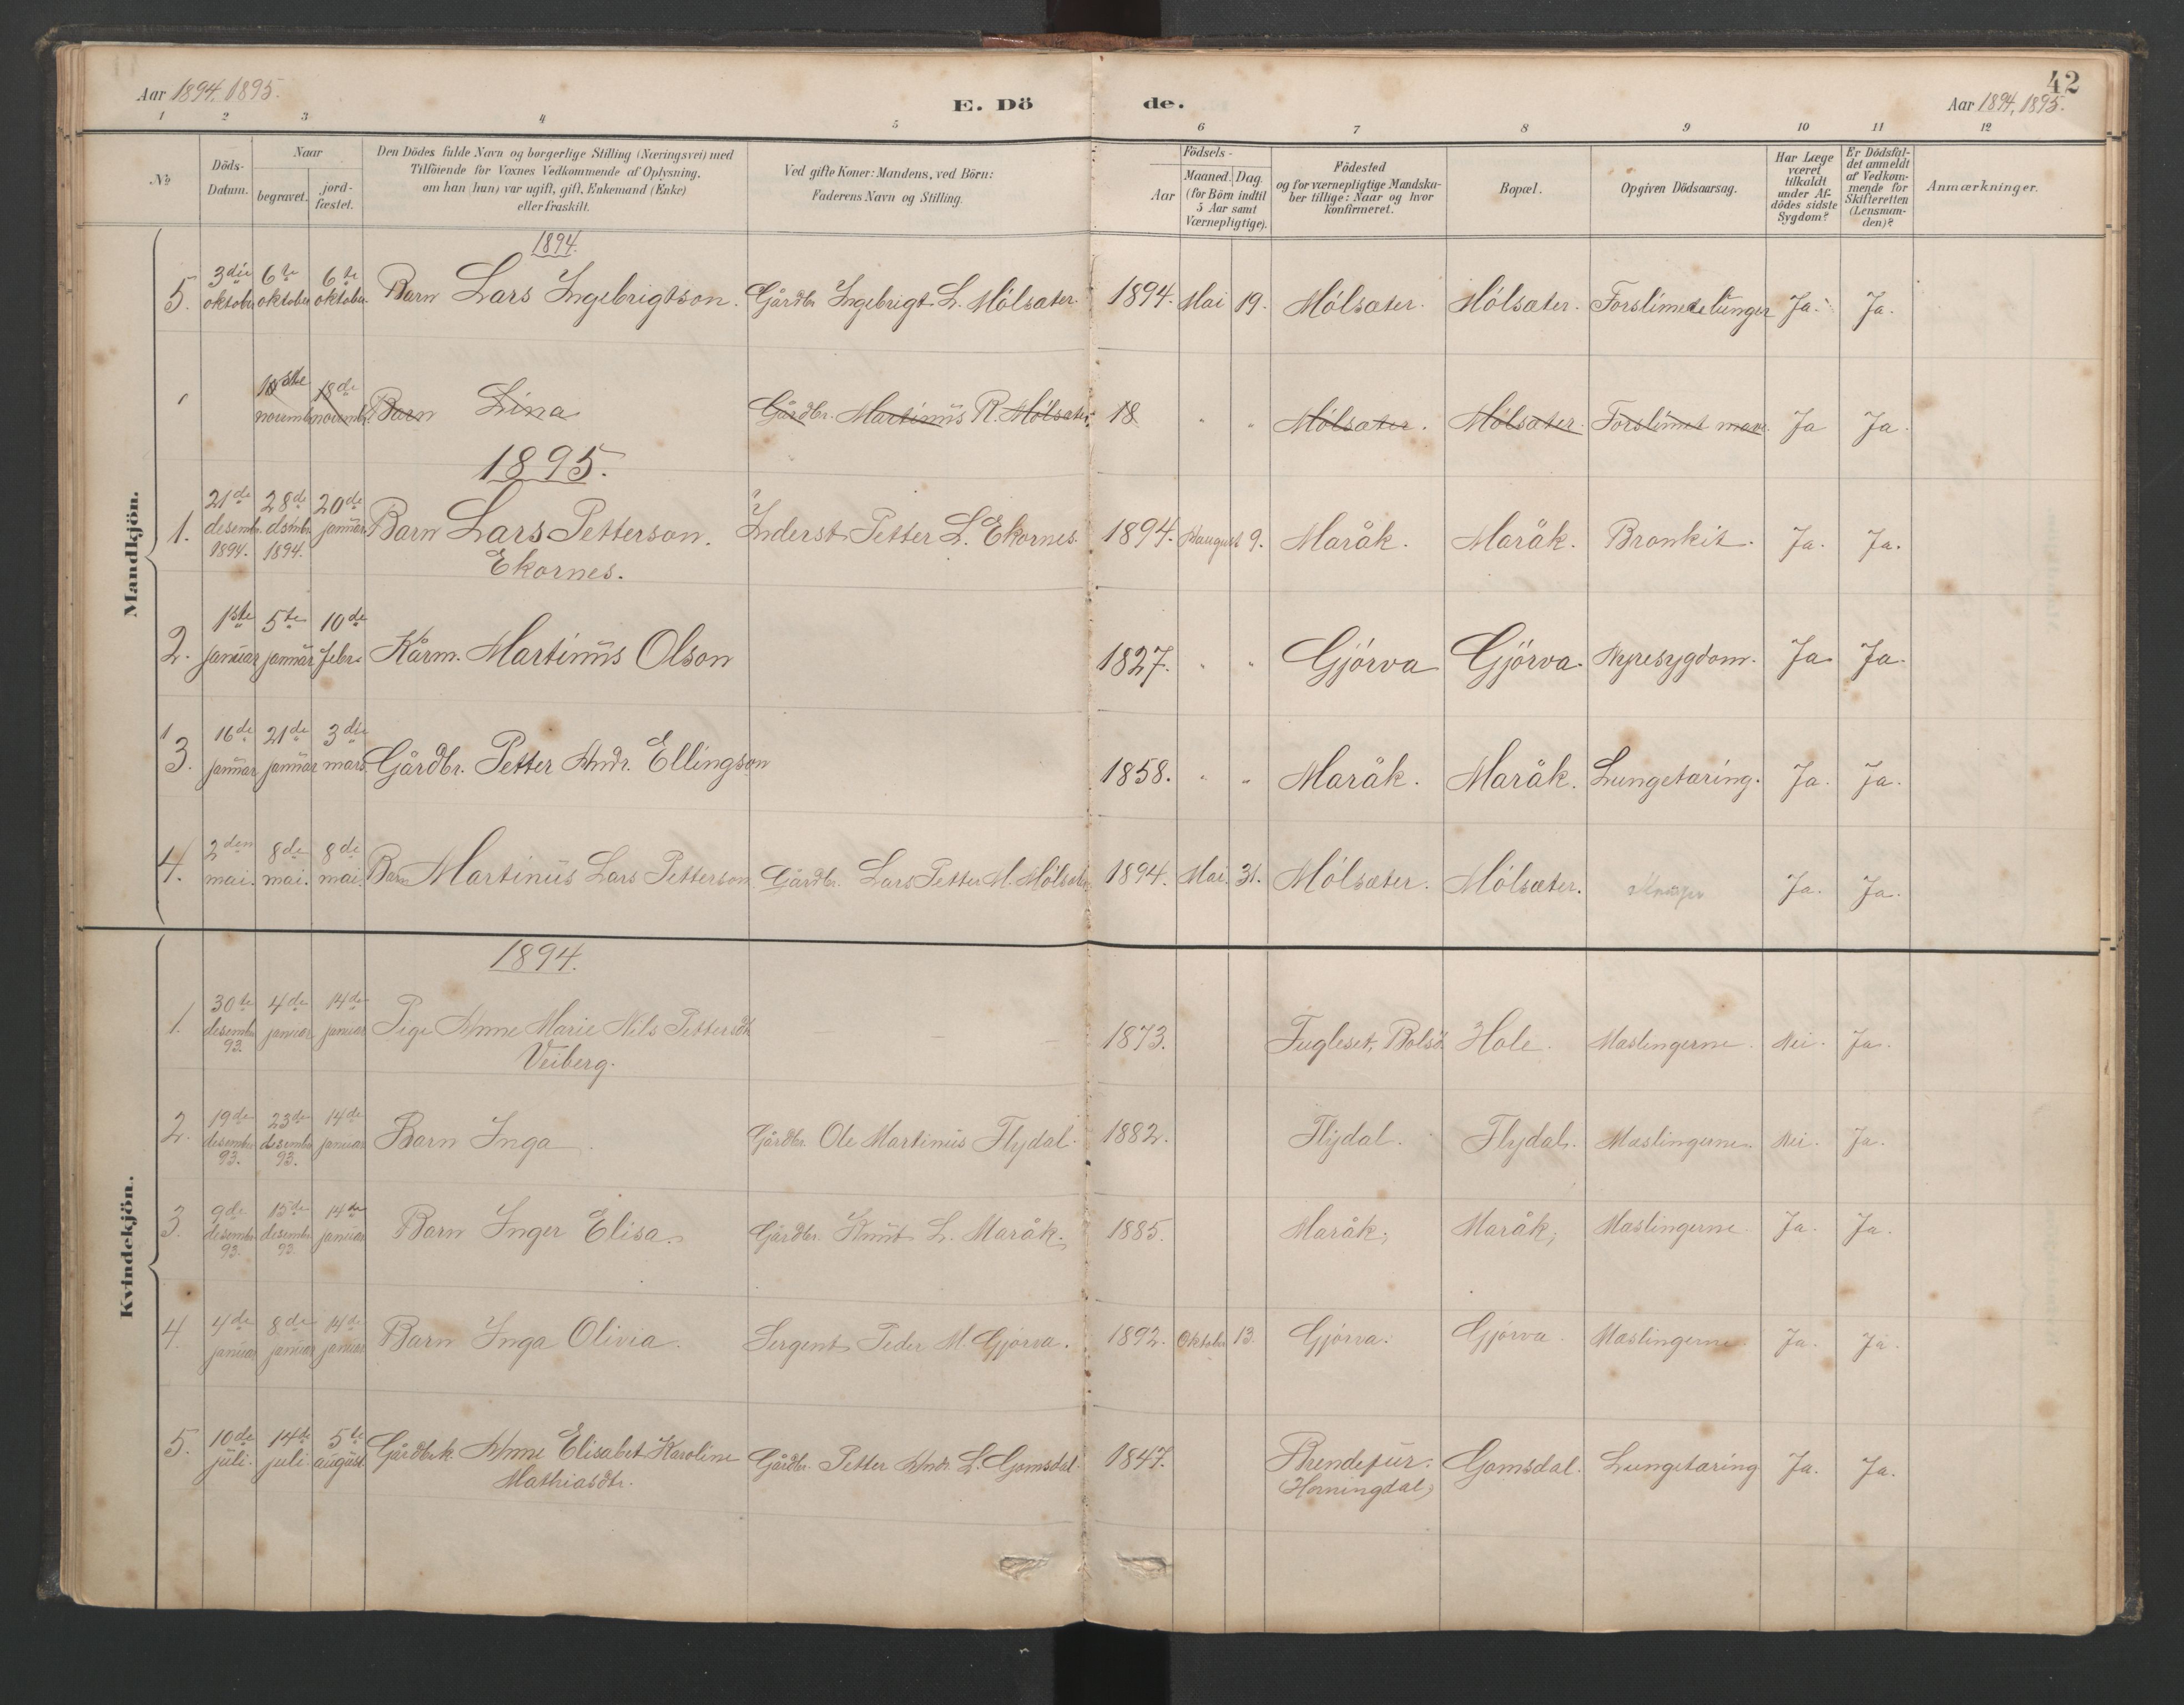 42
Aar 1894, 1895.
E. Dö de.
Aar 1894, 1895.
1 2 3 4 5 6 7 8 9 10 11 12
No
Döds-
Datum.
Naar
begravet.
jord-
fæstet.
Den Dödes fulde Navn og borgerlige Stilling (Næringsvei) med
Tilföiende for Voxnes Vedkommende af Oplysning,
om han (hun) var ugift, gift, Enkemand (Enke)
eller fraskilt.
Ved gifte Koner: Mandens, ved Börn:
Faderens Navn og Stilling.
Födsels-
Aar
Maaned. Dag
(for Börn indtil
5 Aar samt
Værnepligtige).
Födested
og for værnepligtige Mandska-
ber tillige: Naar og hvor
konfirmeret.
Bopæl.
Opgiven Dödsaarsag.
Har Læge
været
tilkaldt
under Af-
dödes sidste
Sygdom?
Er Dödsfal-
det anmeldt
af Vedkom-
mende for
Skifteretten
(Lensman-
den)?
Anmærkninger.
Mandkjön.
1894.
5. 3die oktober 6te oktober 6te oktober. Barn Lars Ingebrigtson. Gårdbr. Ingebrigt L. Mölsæter 1894. Mai 19. Mölsæter. Mölsæter. Forslimede lunger Ja. Ja.
novemb. 18de novembr. Barn Lina Gårdbr. Martinüs R. Mölsæter. 18 " " Mölsæter. Mölsæter. Forslimet mave. Ja Ja.
1895.
1. 21de desemb. 1894. 28de dsmbr. 1894. 20de januar. Barn Lars Petterson. Inderst Petter L. Ekornes. 1894. august 9. Maråk. Maråk. Bronkit. Ja. Ja.
Ekornes.
2. 1ste januar 5te januar 10de febr. Kårm. Martinüs Olson 1827. " " Gjörva Gjörva. Nyresygdom. Ja Ja.
3. 16de januar 21de januar 3die mars. Gårdbr. Petter Andr. Ellingson 1858. " " Maråk. Maråk. Lungetæring. Ja. Ja.
4. 2den mai. 8de mai. 8de mai. Barn Martinüs Lars Petterson Gårdbr. Lars Petter M. Mölsæter 1894. Mai. 31. Mölsæter. Mölsæter. Ja. Ja.
Kvindekjön.
1894.
1. 30te desember 93. 4de januar 14de januar Pige Anne Marie Nils Pettersdtr 1873. Fugleset, Bolsö. Hole. Mæslingerne. Nei. Ja.
Veiberg.
2. 19de desember 93. 23de desember 93. 14de januar Barn Inga. Gårdbr. Ole Martinüs Flydal. 1882. Flydal. Flydal. Mæslingerne. Nei. Ja.
3. 9de desember 93. 15de desember 93. 14de januar Barn Inger Elisa. Gårdbr. Knut L. Maråk. 1885. Maråk, Maråk, Mæslingerne. Ja. Ja.
4. 4de januar 8de januar 14de januar Barn Inga Olivia. Sergent Peder M. Gjörva. 1892. Oktober 13. Gjörva. Gjörva. Mæslingerne. Ja. Ja.
5. 10de juli. 14de juli 5te august Gårdbrk. Anne Elisabet Karoline Gårdbr. Petter Andr. L. Gomsdal. 1847. Gomsdal. Lungetæring Ja. Ja.
Mathiasdtr. (Horningdal)